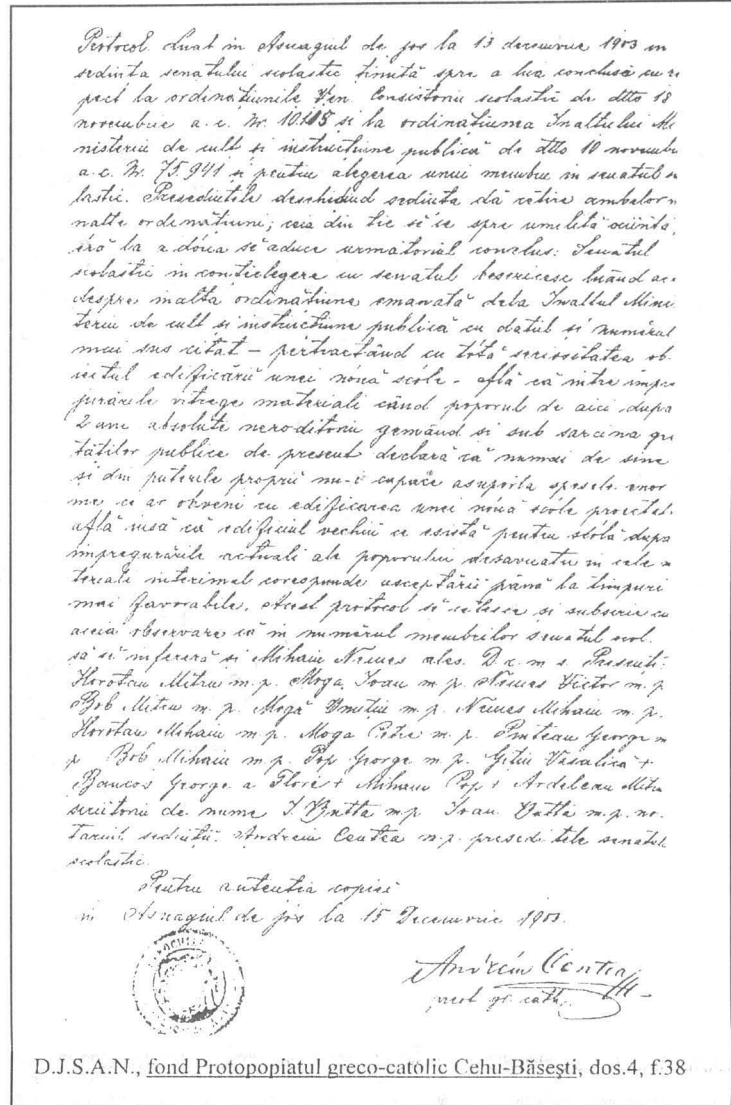 Protocol luat in Asuagiul de jos la 13 decemvrie 1903 in
sedinta senatului scolastic ținută spre a lua conclusă cu re
pect la ordinațiunile Ven. Consistoriu scolastic de dtto 18
novembrie a. c. Nr. 10.118 si la ordinațiunea Inaltului Mi
nisteriu de cult și instrucțiune publică de dtto 10 novembr
a. c. Nr. 75.941 și pentru alegerea unui membru in senatul s
lastic. Presedintele deschidând sedinta dă cetire ambelor
nalte ordinațiuni; ceia din tîe să ie spre umilită sciință,
éră la a doua se aduce urmatoriul conclus: Senatul
scolastic in contielegere cu senatul besericesc luând ac
despre inalta ordinațiune emanată dela Inaltul Mini
teriu de cult si instructiune publică cu datul și numărul
mai sus citat – pertractând cu tótă seriositatea ob
iectul edificării unei nóuă scóle – află că intre impre
jurările vitrege materiali când poporul de aici dupa
2 ani absolute neroditorii gemând si sub sarcina gre
tăților publice de present declară că numai de sine
și din puterile proprii nu-i capace a suporta spesele enor
me ce ar obveni cu edificarea unei nóuă scóle proiectat.
află insă că edificiul vechiu ce esistă pentru scólă dupa
impregurările actuali ale poporului desavuatu in cele m
teriale interimal corespunde asceptării până la timpuri
mai favorabile. Acest protocol să cetesce și subscrie cu
aceia observare că in numărul membrilor senatul scol.
să si inferară si Mihaiu Nemes ales. D. c. m. s. Presenți:
Horotan Mitru m. p. Moga Ioan m. p. Nemes Victor m. p
Bob Mitru m. p. Mogă Dmitriu m. p. Nemes Mihaiu m. p.
Horotan Mihaiu m. p. Moga Petre m. p. Pintean George m
p Bob Mihaiu m. p. Pop George m. p. Gitiu Vasalica +
Bancos George a Flore + Mihaiu Pop + Ardelean Mitru
scriitoriu de nume I. Butta m.p Ioan Butta m. p. no.
tariul sedinții. Andreiu Centea m. p. presedintele senatul
scolastic.
Pentru autentia copiei
in Asuagiul de jos la 15 Decemvrie 1903.
Andreiu Centea
preot gr. cath.
D.J.S.A.N., fond Protopopiatul greco-catolic Cehu-Băsești, dos.4, f.38